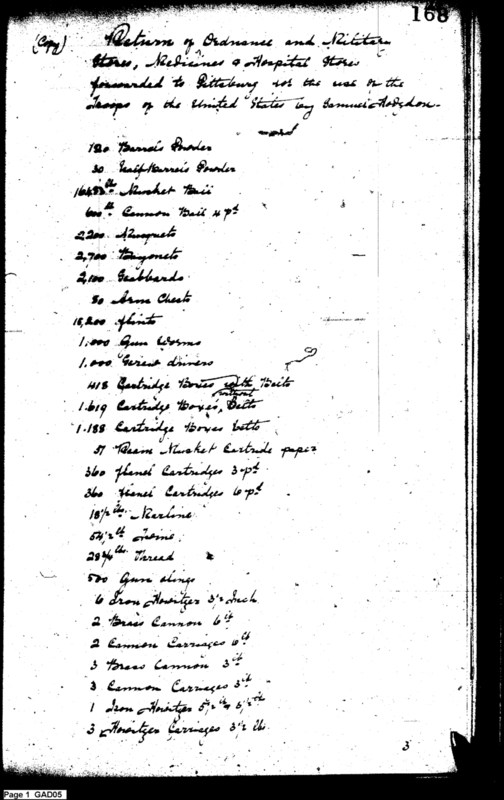 168
(Copy) Return of Ordnance and Military
Stores, Medicines & Hospital Stores
forwarded to Pittsburg for the use of the
Troops of the United States by Samuel Hodgdon
120 Barrels Powder
30 Half Barrels Powder
Musket Ball
600 lb Cannon Ball 4 pd
2,200 Musquets
2,700 Bayonets
2,100 Scabbards
80 Arm Chests
18,200 flints
1,000 Gun Worms
1,000 Screw drivers
418 Cartridge Boxes with Belts
1.619 Cartridge Boxes, without Belts
1.188 Cartridge Boxes belts
51 Ream Musket Cartride paper
360 flanel Cartridges 3 pd
360 flanel Cartridges 6 pd
18 1/2 lbs Marline
54 1/2 lb
28 3/4 lbs Thread
500 Gun slings
6 Iron Howitzer 3 1/2 Inch
2 Brass Cannon 6 lb
2 Cannon Carriages 6 lb
3 Brass Cannon 3 lb
3 Cannon Carriages 3 lb
1 Iron Howitzer 5 1/2
3 Howitzer Carriages 3 1/2 lb
3
Page 1 GAD05